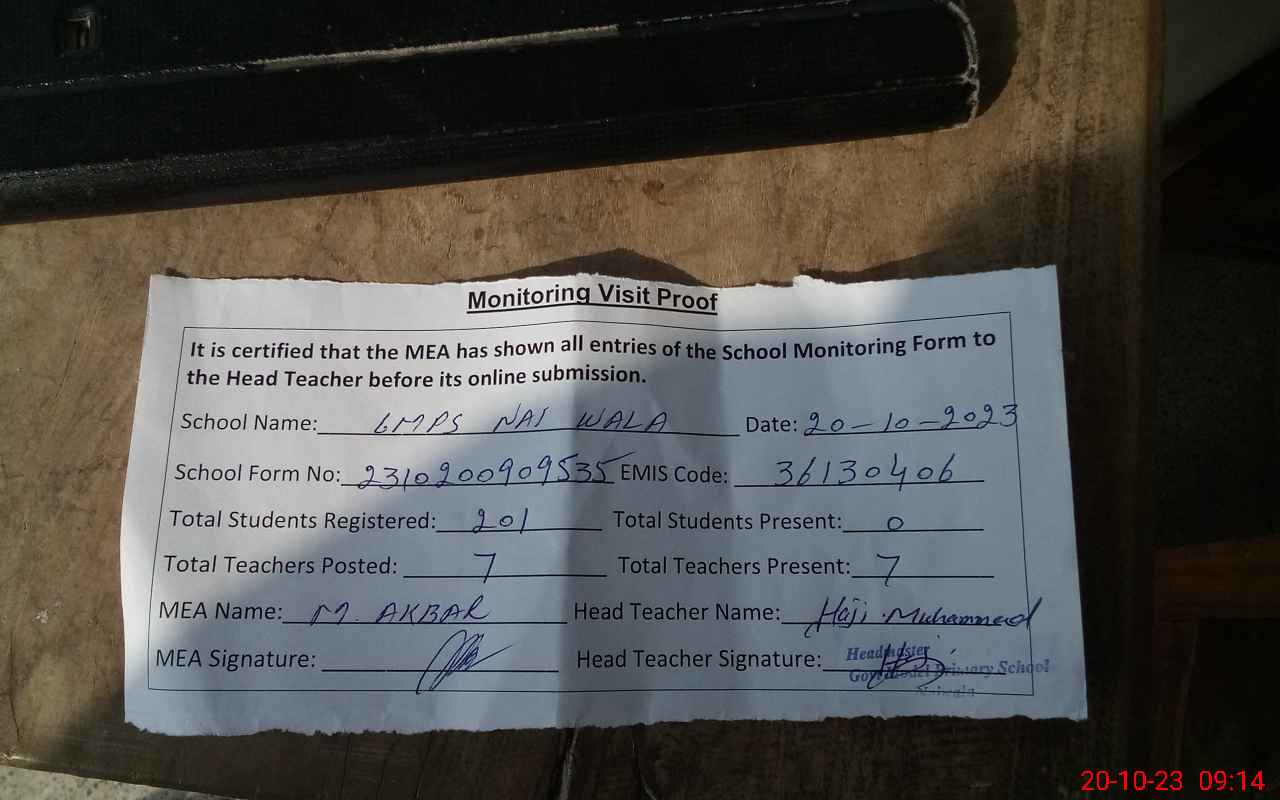 Monitoring Visit Proof
It is certified that the MEA has shown all entries of the School Monitoring Form to
the Head Teacher before its online submission.
School Name: GMPS NAI WALA Date: 20-10-2023
School Form No: 2310200909535 EMIS Code: 36130406
Total Students Registered: 201 Total Students Present: 0
Total Teachers Posted: 7 Total Teachers Present: 7
MEA Name: M. AKBAR Head Teacher Name: Haji Muhammad
MEA Signature: Head Teacher Signature:
Headmaster
Govt Model Primary School
20-10-23 09:14